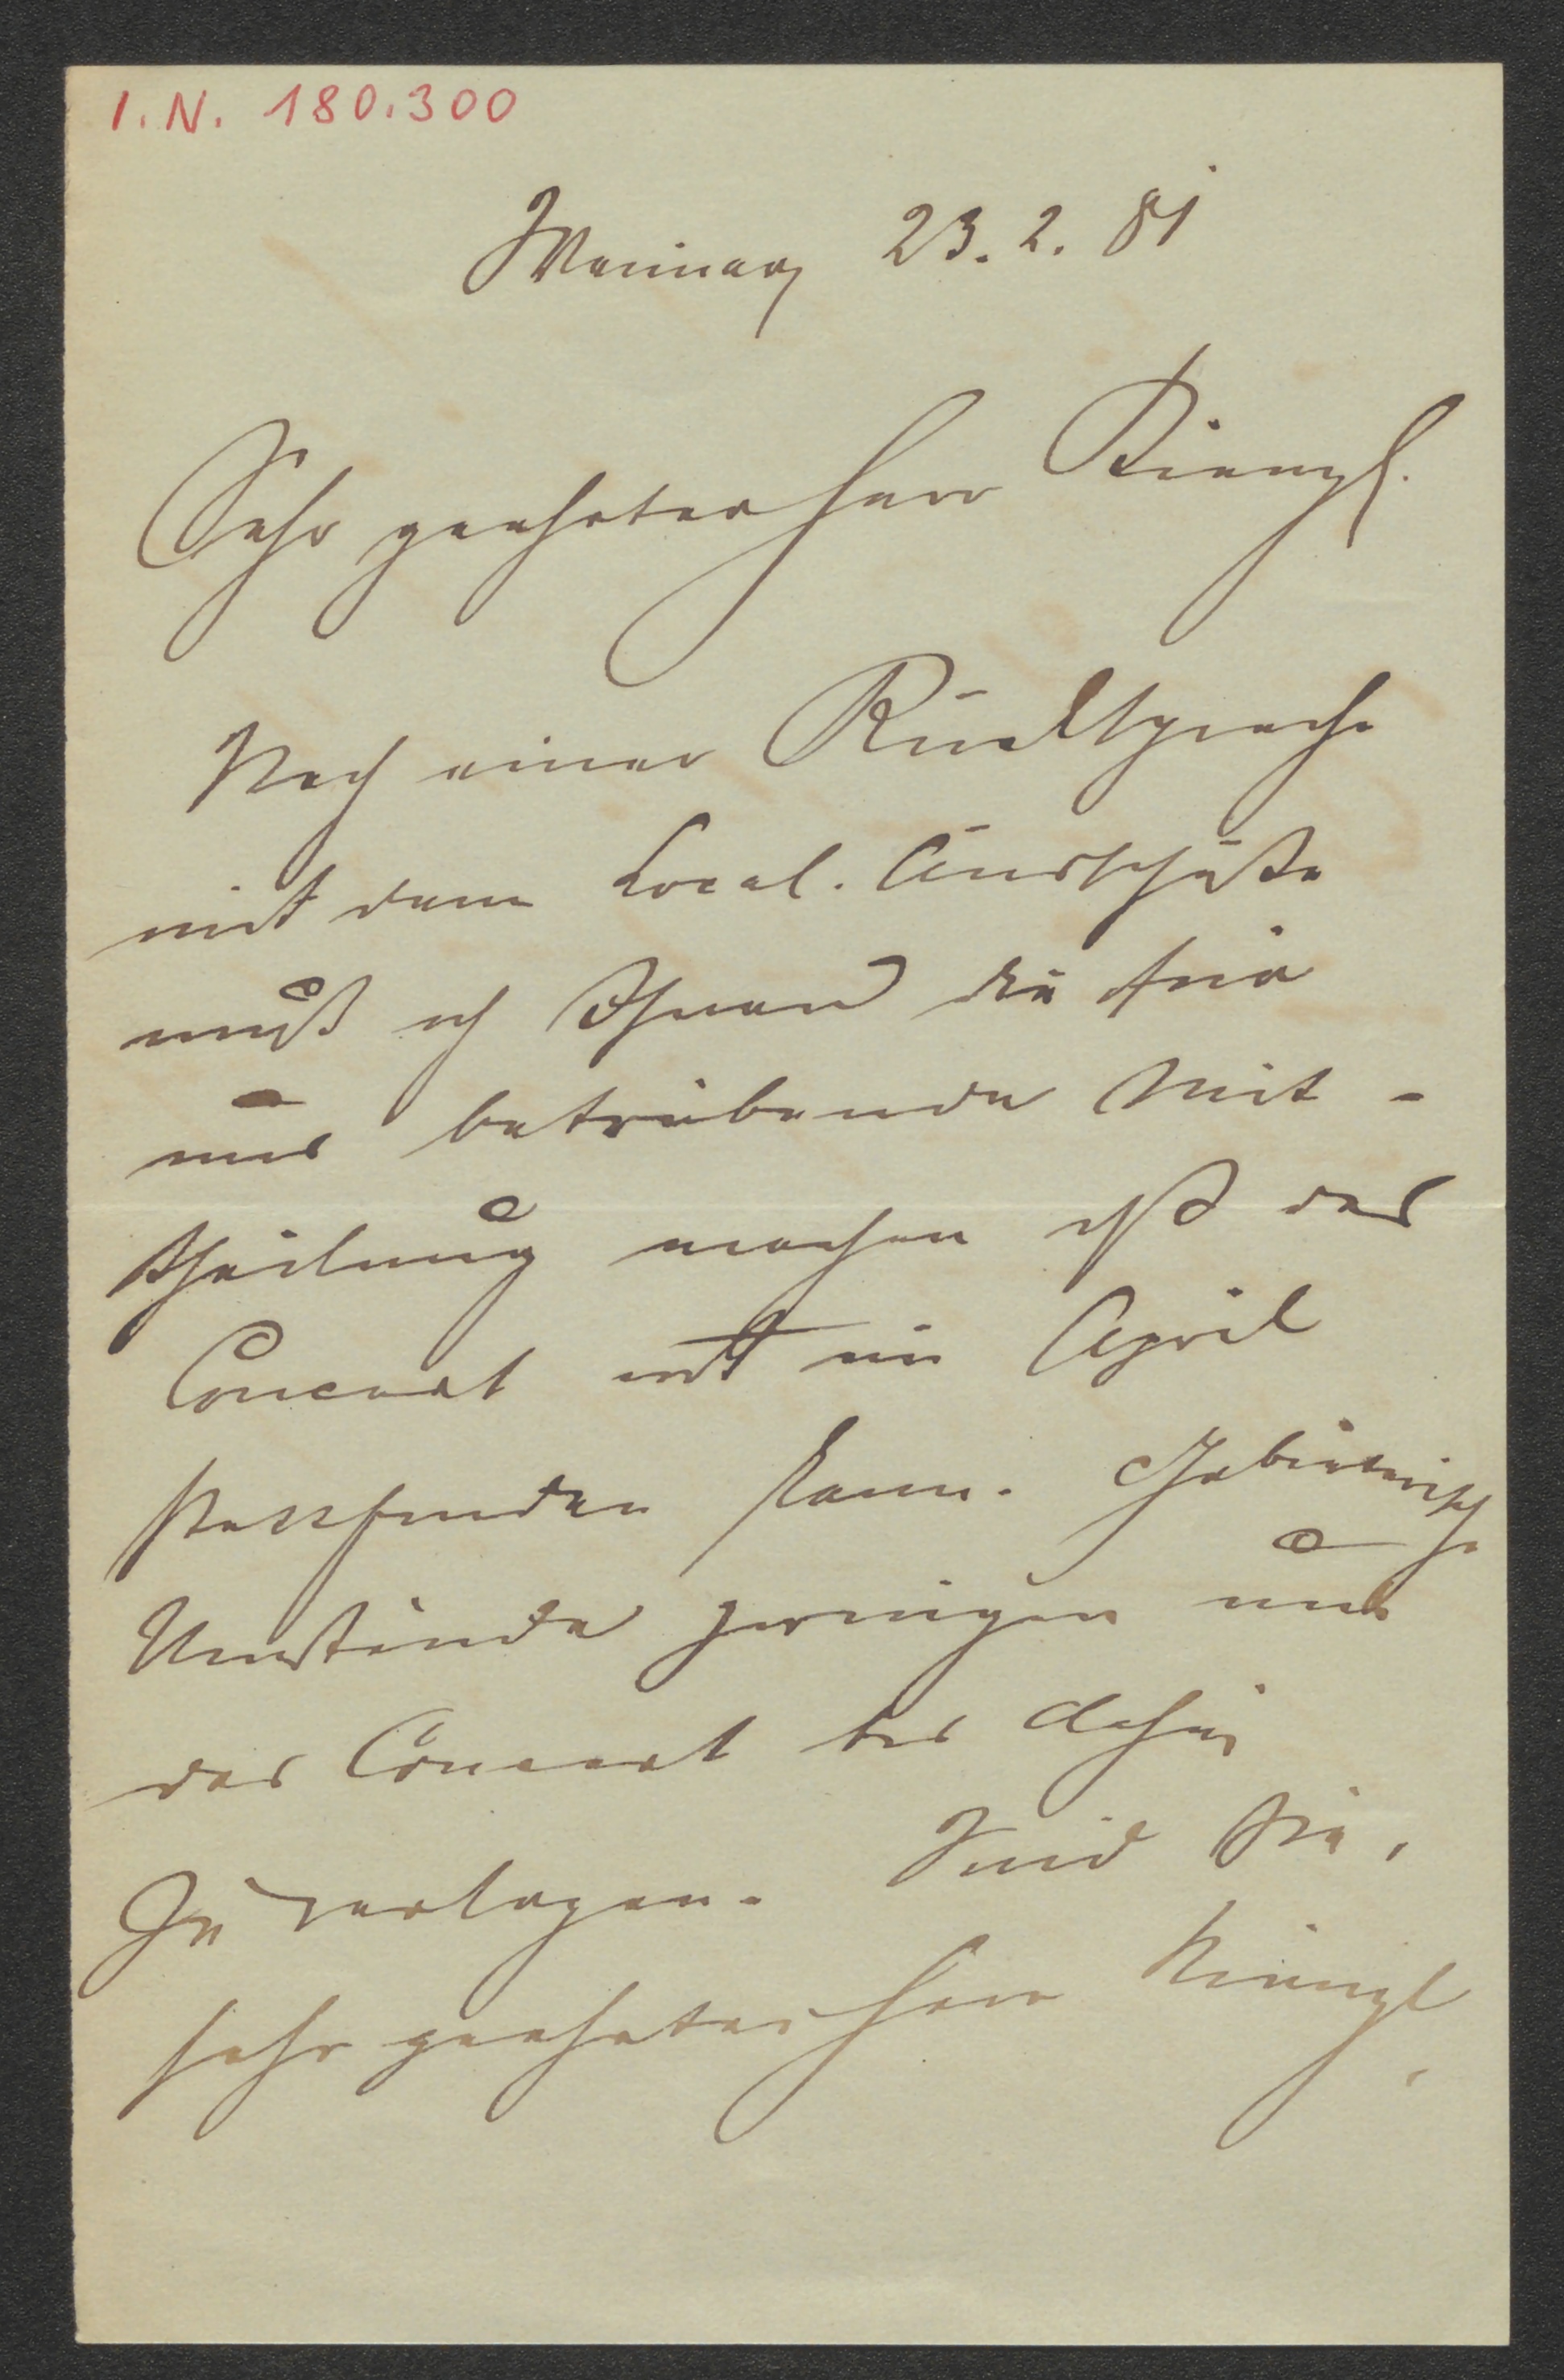 I.N. 180.300
Weimar 23. 2. 81
Sehr geehrter Herr Kienzl.
Nach einer Rücksprache
mit dem Local. Ausschuße
muß ich Ihnen die für
uns betrübende Mit-
theilung machen daß das
Concert erst im April
stattfinden kann. Gebieterische
Umstände zwingen uns
das Concert bis dahin
zu vertagen. Sind Sie,
sehr geehrter Herr Kienzl,